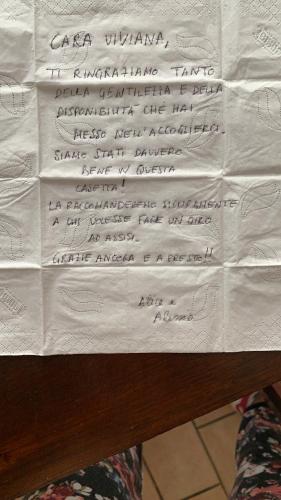 CARA VIVIANA,
TI RINGRAZIAMO TANTO
DELLA GENTILEZZA E DELLA
DISPONIBILITÀ CHE HAI
MESSO NELL'ACCOGLIERCI.
SIAMO STATI DAVVERO
BENE IN QUESTA
CASETTA!
LA RACCOMANDEREMO SICURAMENTE
A CHI VOLESSE FARE UN GIRO
AD ASSISI.
GRAZIE ANCORA E A PRESTO!!